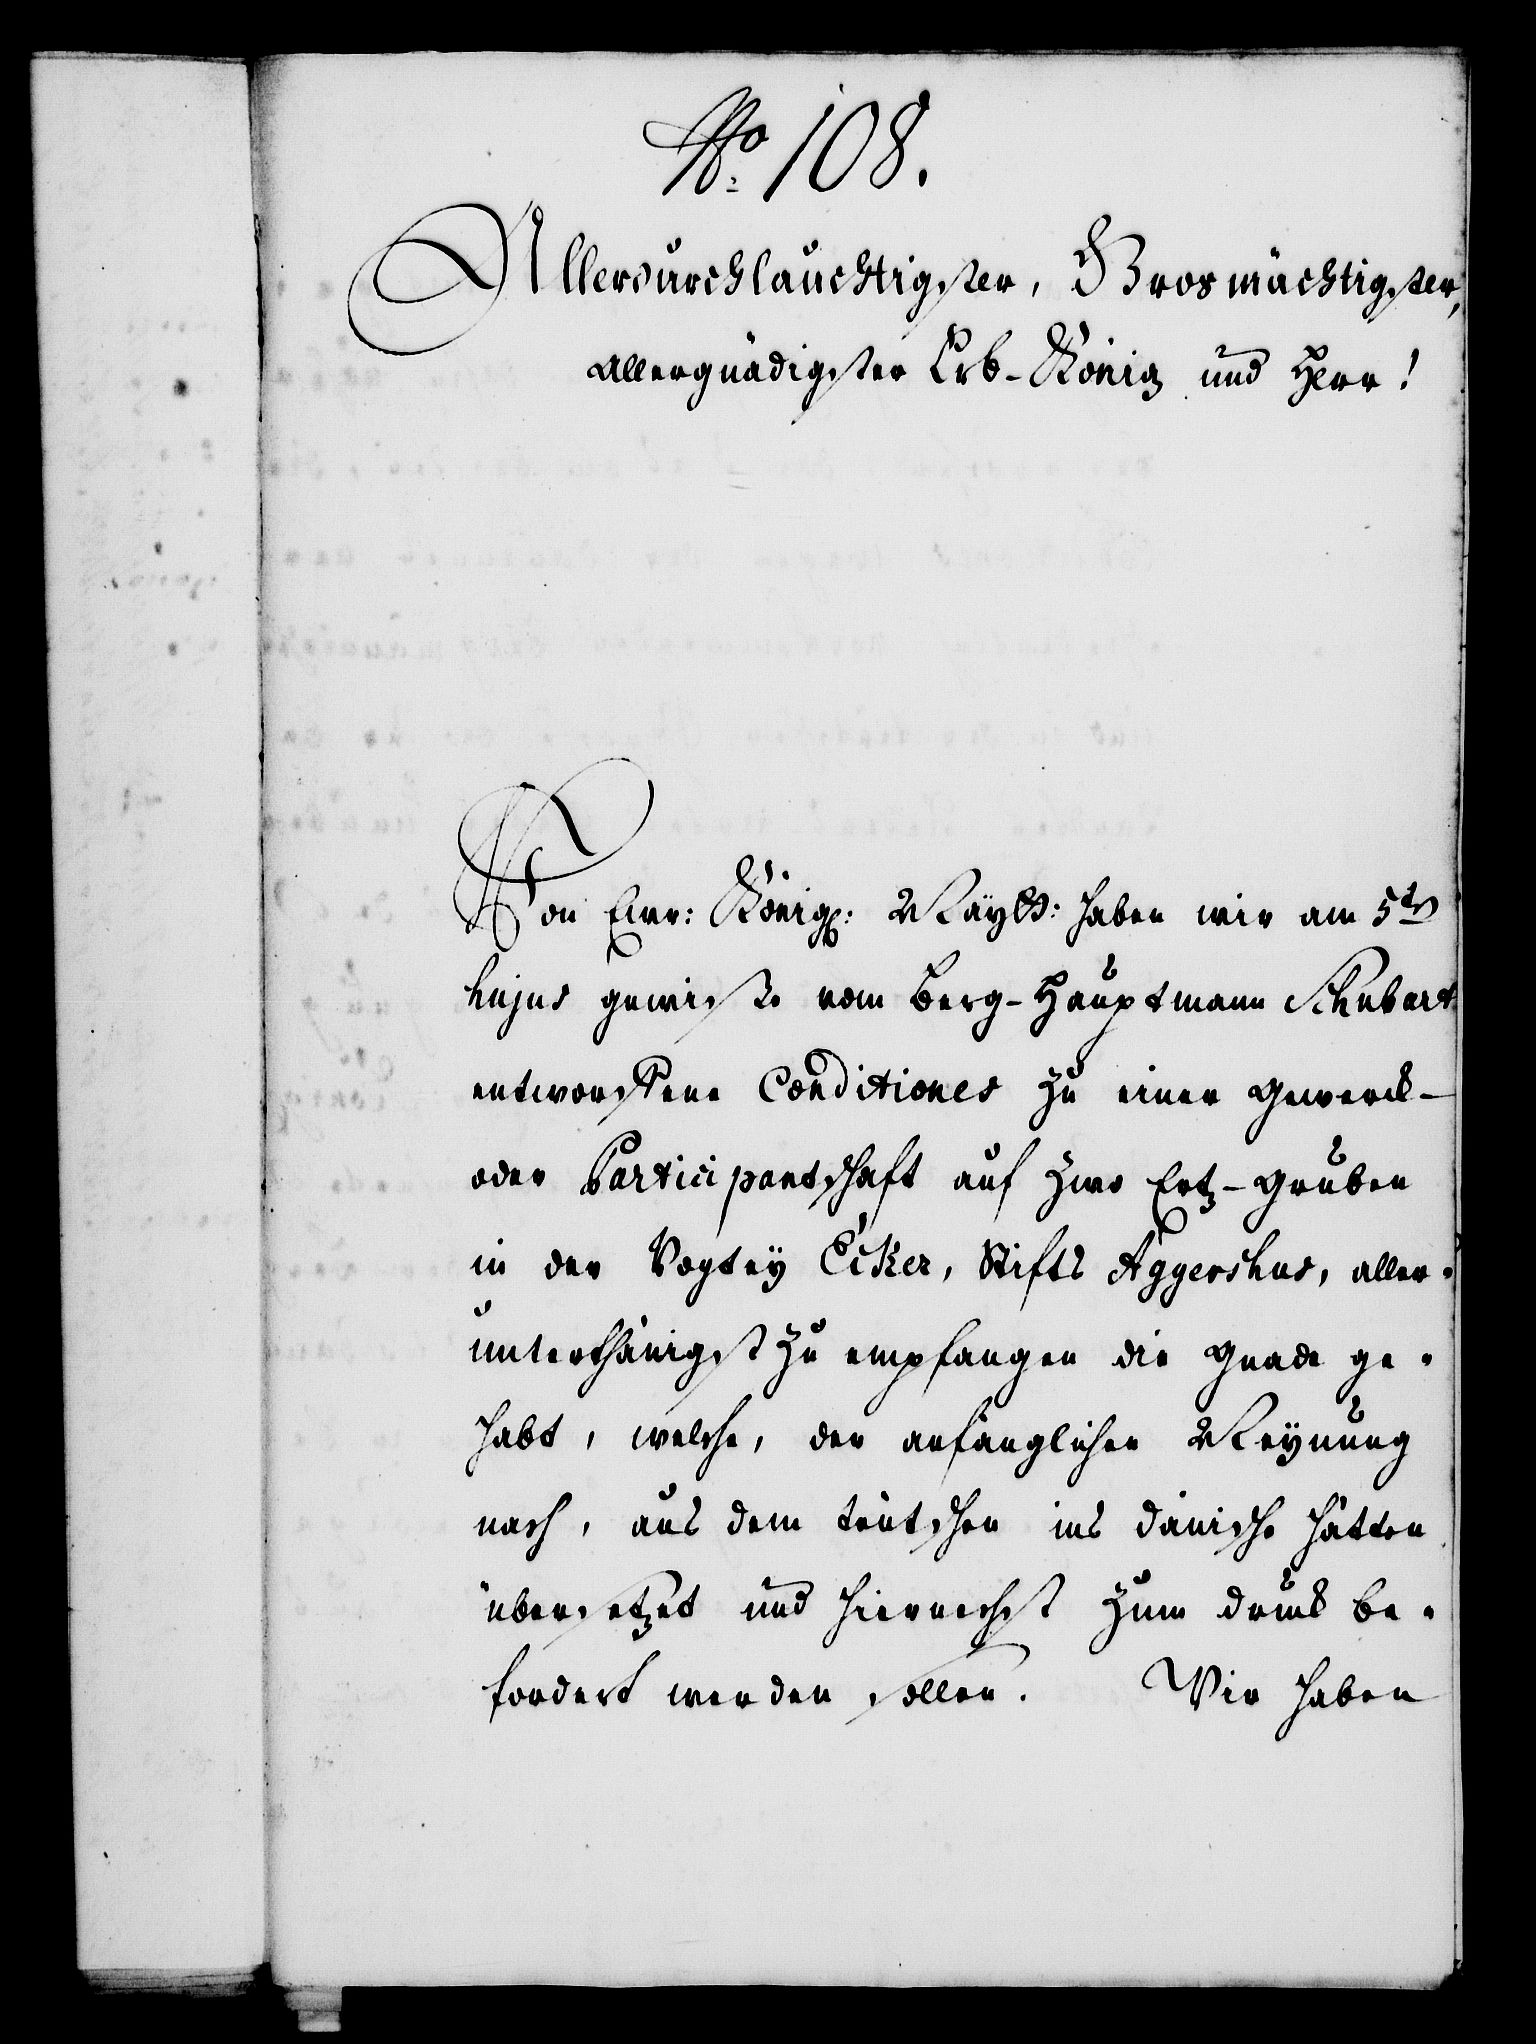 No. 108.
Allerdurchlauchtigster, Grosmächtigster,
allergnädigster Erb-König und Herr!
Von Ewr: Königl: Mäytt: haben wir am 5ten
hujus gewiße vom Berg-Hauptmann Schubart
entworffene Conditiones zu einer Gewerck-
oder Participantschaft auf zwo Ertz-Gruben
in der Vogtey Eiker, Stifts Aggershus, aller-
unterthänigst zu empfangen die Gnade ge-
habt, welche, der anfänglichen Meynung
nach, aus dem teutschen ins dänische hätten
übersetzet und hiernechst zum druck be-
fordert werden sollen. Wir haben